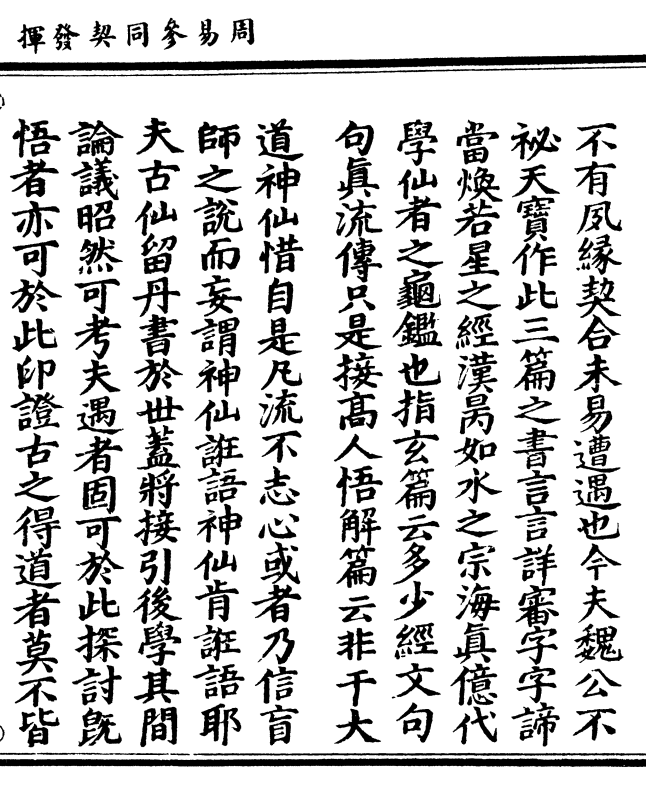 周易參同契發揮
不有夙緣契合未易遭遇也今夫魏公不
祕天寶作此三篇之書言言詳審字字諦
當煥若星之經漢昺如水之宗海眞億代
學仙者之龜鑑也指玄篇云多少經文句
句眞流傳只是接髙人悟解篇云非干大
道神仙惜自是凡流不志心或者乃信盲
師之說而妄謂神仙誑語神仙肯誑語耶
夫古仙留丹書於世蓋將接引後學其間
論議昭然可考夫遇者固可於此探討旣
悟者亦可於此印證古之得道者莫不皆